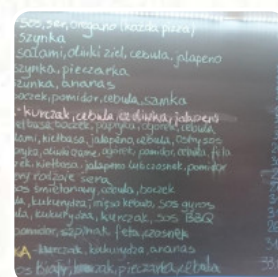 sos, ser, oregano (każda pizza)
szynka
salami, oliwki ziel, cebula, jalapeno
szynka, pieczarka
szynka, ananas
boczek, pomidor, cebula, szynka
- kurczak, cebula, oliwka, jalapeno
kiełbasa, boczek, papryka, ogórek, cebula
salami, kiełbasa, jalapeno, cebula, ostry sos
oliwki czarne, pomidor, cebula, feta
kiełbasa, jalapeno lub czosnek, pomidor
rodzaje sera
sos śmietanowy, cebula, boczek
kukurydza, mięso kebab, sos gyros
kukurydza, kurczak, sos BBQ
pomidor, szpinak, feta, czosnek
KA - kurczak, kukurydza, ananas
sos biały, kurczak, pieczarka, cebula